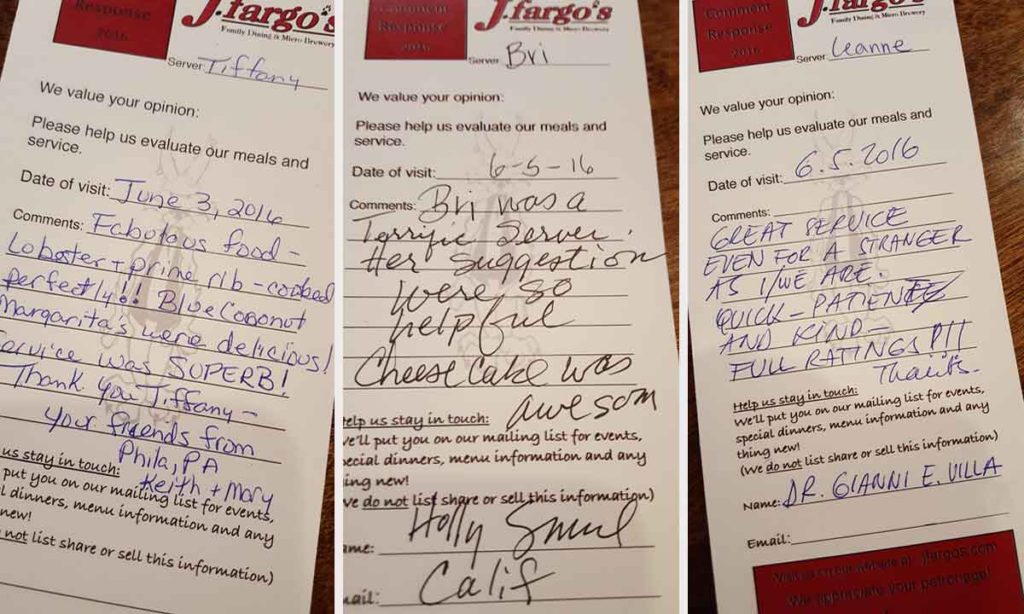 Response
2016
J.fargo's
Family Dining & Micro Brewery
Server: Tiffany
We value your opinion:
Please help us evaluate our meals and
service.
Date of visit: June 3, 2016
Comments: Fabulous food -
Lobster + prime rib - cooked
perfectly!! Blue Coconut
Margarita's were delicious!
Service was SUPERB!
Thank you Tiffany -
your friends from
Phila, PA
us stay in touch:
Keith + Mary
put you on our mailing list for events,
l dinners, menu information and any
new!
not list share or sell this information)
Comment
Response
2016
J.fargo's
Family Dining & Micro Brewery
Server Bri
We value your opinion:
Please help us evaluate our meals and
service.
Date of visit: 6-5-16
Comments: Bri was a
Terrific Server.
Her suggestion
were so
helpful
Cheese Cake was
awesom
Help us stay in touch:
We'll put you on our mailing list for events,
pecial dinners, menu information and any
ing new!
ve do not list share or sell this information)
ame: Holly
mail: Calif
Comment
Response
2016
J.fargo's
Family Dining & Micro Brewery
Server: Leanne
We value your opinion:
Please help us evaluate our meals and
service.
Date of visit: 6.5.2016
Comments:
GREAT SERVICE
EVEN FOR A STRANGER
AS I/WE ARE.
QUICK - PATIENT
AND KIND -
FULL RATINGS !!!
Thanks.
Help us stay in touch:
We'll put you on our mailing list for events,
special dinners, menu information and any
thing new!
(We do not list share or sell this information)
Name: DR. GIANNI E. VILLA
Email:
Visit us on our website at: jfargos.com
We appreciate your patronage!